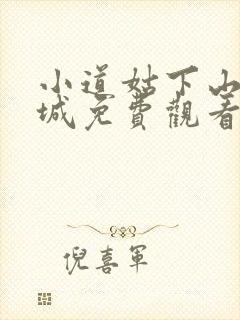 小道姑下山
城免費觀看
倪喜軍